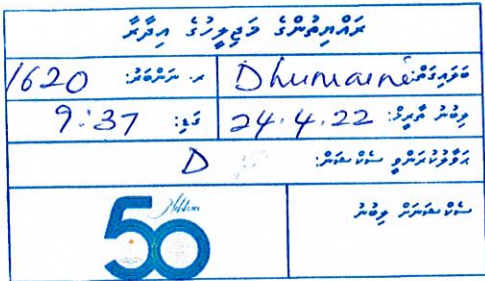 ރައްޔިތުންގެ މަޖިލީހުގެ އިދާރާ
ބަލައިގަތް: Dhumaina ރ. ނަންބަރު: 1620
ލިބުނު ތާރީޚް: 24.4.22 ގަޑި: 9:37
ޙަވާލުކުރަންވީ ސެކްޝަން: D
ސެކްޝަނަށް ލިބުނު
50